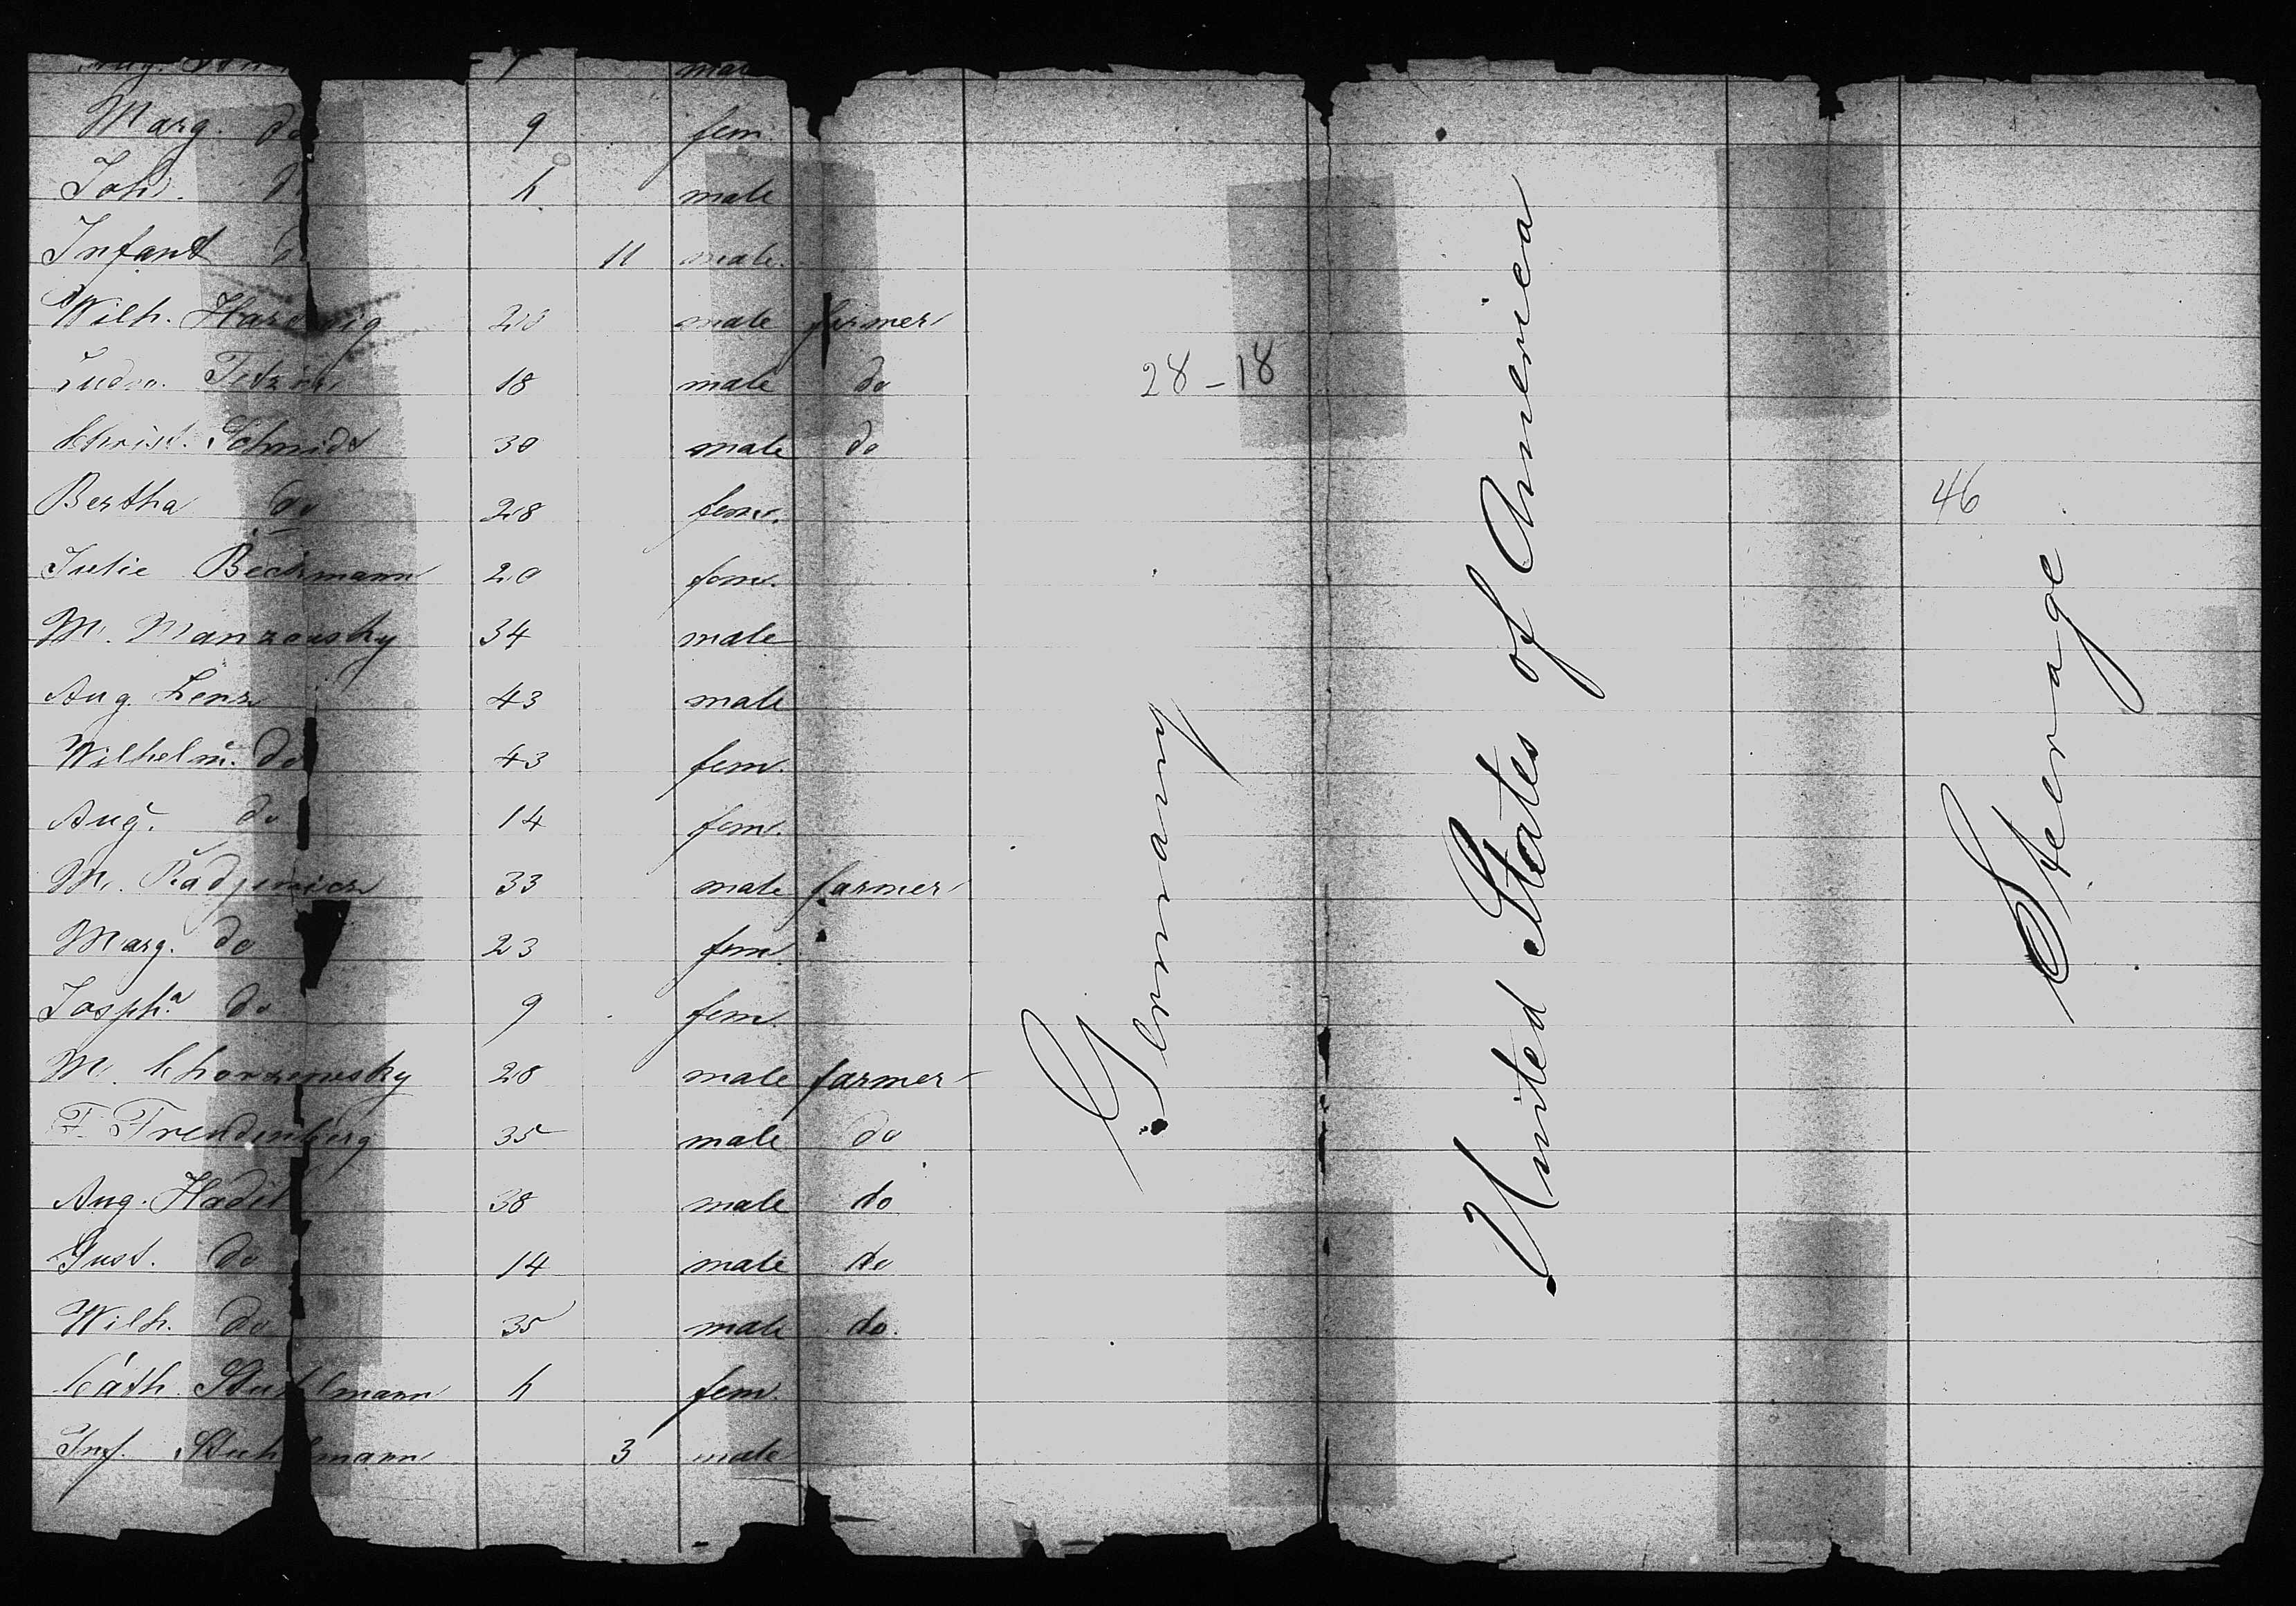 Marg. do 9 fem.
Joh. do h male
Infant do 11 male.
Wilh. Hartwig 20 male farmer
18 male do
28-18
Christ. Schmidt 30 male do
Bertha do 28 fem.
46
Julie Beckmann 20 fem.
M. Manzewsky 34 male
Aug. Lenz 43 male
Wilhelm. do 43 fem.
Aug. do 14 fem.
M. 33 male farmer
Marg. do 23 fem.
Josph.a do 9 fem.
M. Chorzewsky 28 male farmer
F. Freudenberg 35 male do
Aug. 38 male do
Gust. do 14 male do
Wilh. do 35 male do.
Cath. Stuhlmann h fem.
Inf. Stuhlmann 3 male
Germany
United States of America
Steerage